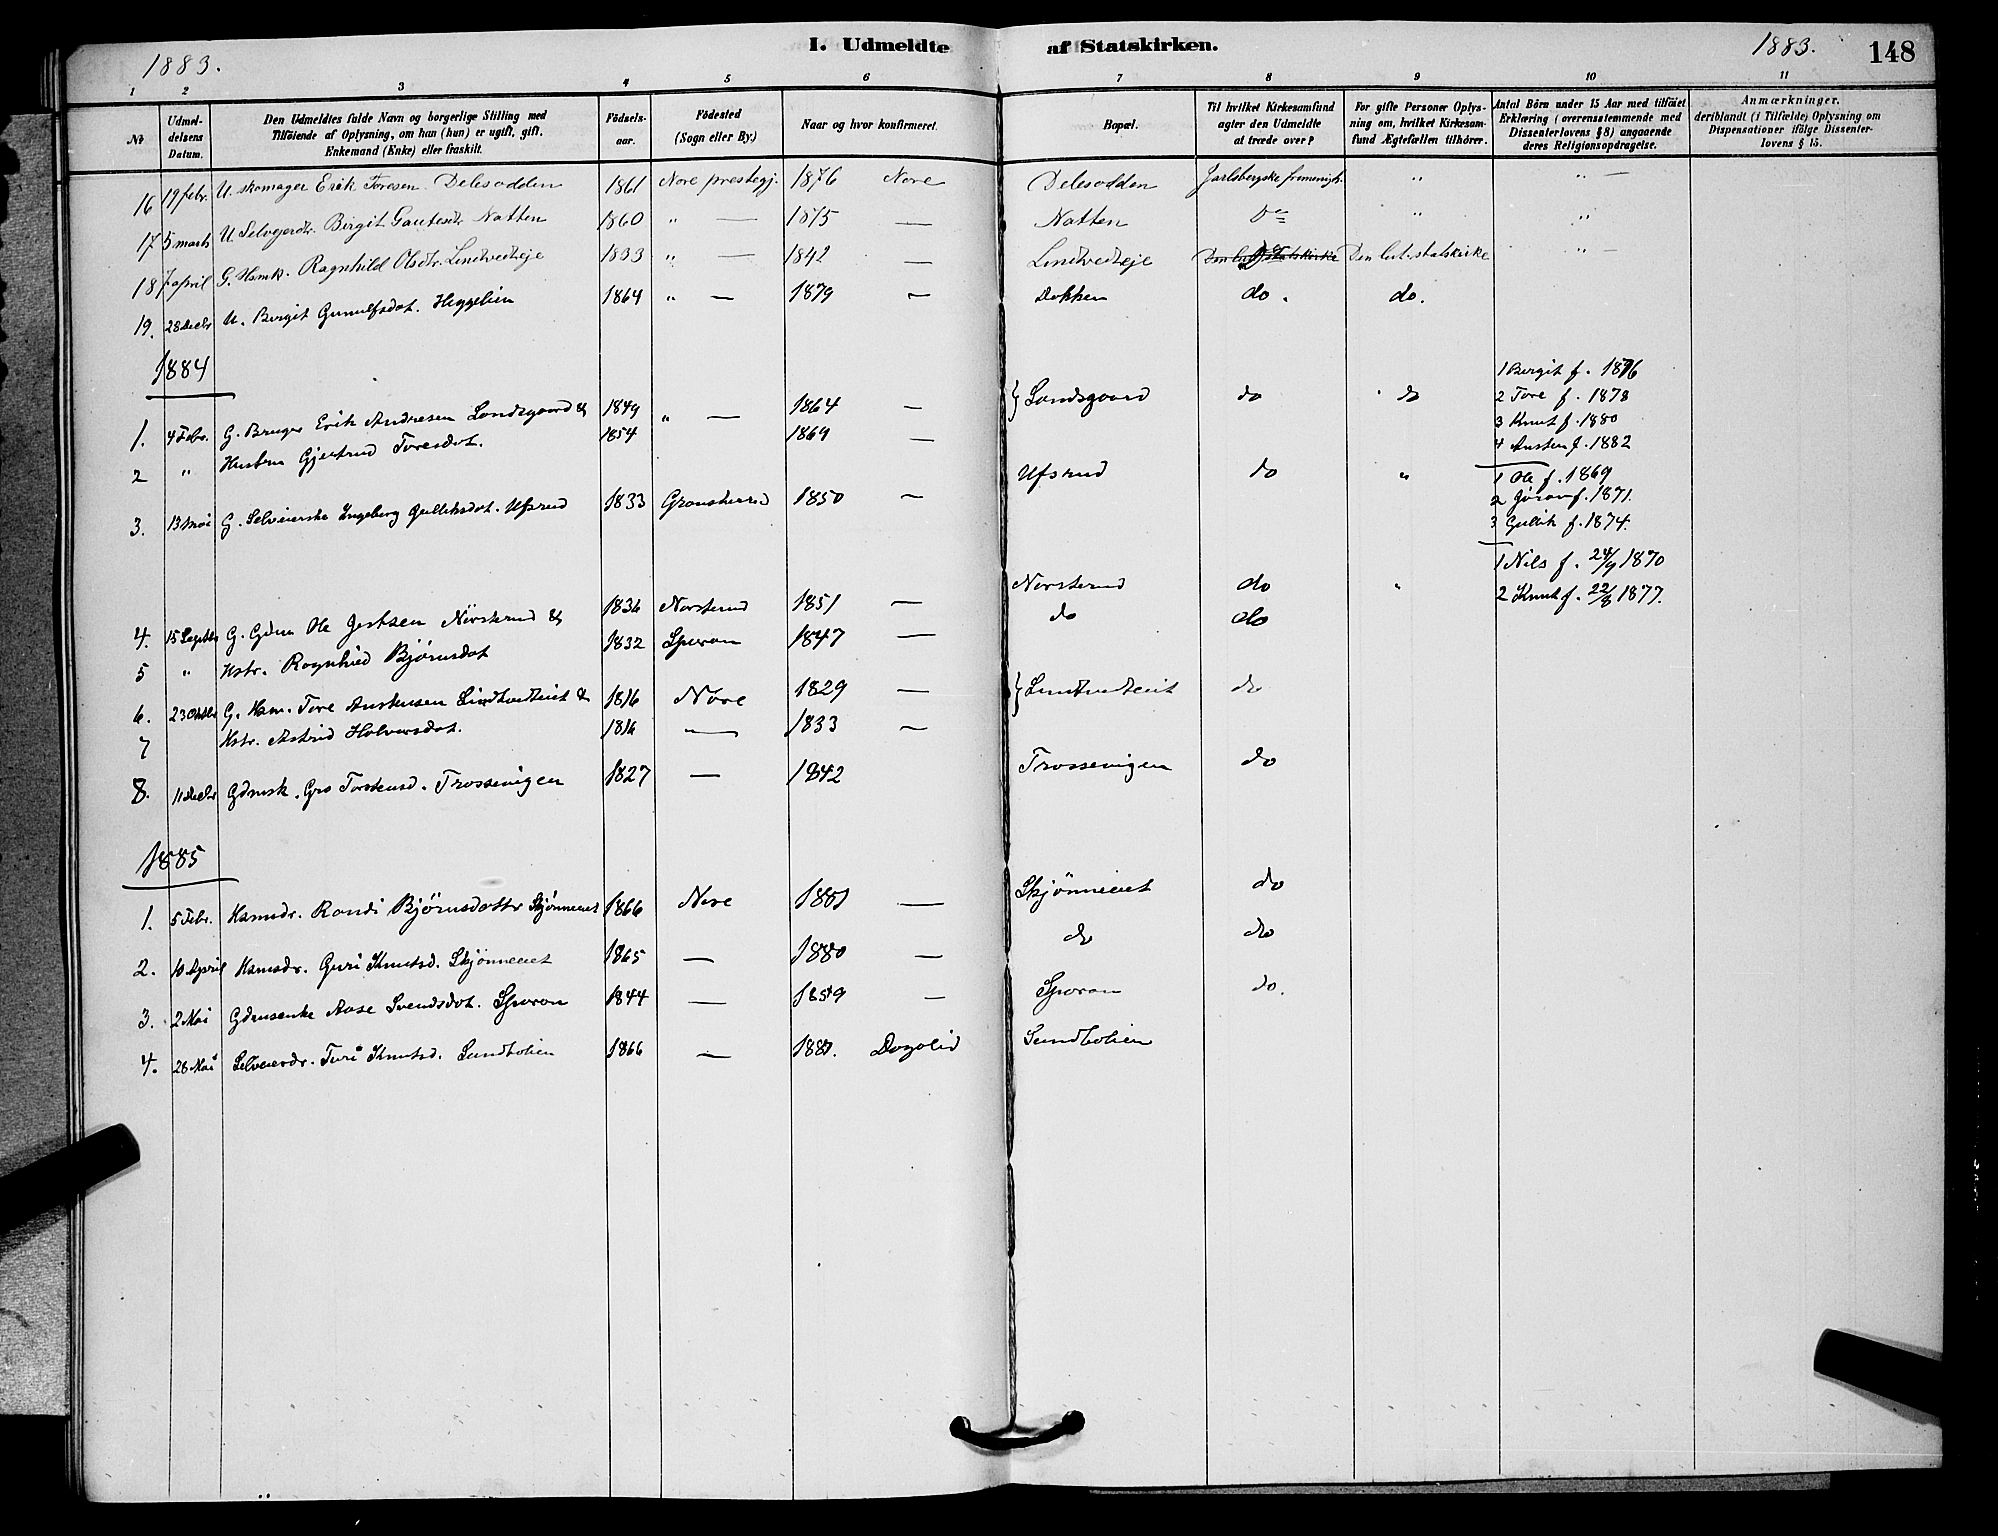 1883.
I. Udmeldte af Statskirken.
1883.
148
1 2 3 4 5 6 7 8 9 10 11
No
Udmeldelsens Datum.
Den Udmeldtes fulde Navn og borgerlige Stilling med
Tilföiende af Oplysning, om han (hun) er ugift, gift,
Enkemand (Enke) eller fraskilt.
Födselsaar.
Födested
(Sogn eller By.)
Naar og hvor konfirmeret.
Bopæl.
Til hvilket Kirkesamfund
agter den Udmeldte
at træde over?
For gifte Personer Oplysning
om, hvilket Kirkesamfund
Ægtefællen tilhörer.
Antal Börn under 15 Aar med tilföiet
Erklæring (overensstemmende med
Dissenterlovens § 8) angaaende
deres Religionsopdragelse.
Anmærkninger,
deriblandt (i Tilfælde) Oplysning om
Dispensationer ifölge Dissenterlovens
§ 15.
16 19 febr. U. skomager Erik Toresen Delesodden 1861 Nore prestegj. 1876 Nore Delesodden Jarlsbergske frimenigh. " " —
17 5 marts U Selvejerdtr. Birgit Gautesdtr. Natten 1860 " — 1875 — Natten Do " "
18 7 april G. Hsmk. Ragnhild Olsdtr. Lindvedteje 1833 " — 1842 — Lindvedteje Den lut. statskirke Do Den lut. statskirke " —
19. 28 Decbr U. Birgit Gunulfsdat. Heggelien 1864 " — 1879 — Dokken do. do.
1884
1. 4 Febr. G. Bruger Erik Andresen Landsgaard & 1849 " — 1864 — } Landsgaard do do
1 Birgit f. 1876
2 Tore f. 1878
3 Knut f. 1880
4 Austen f. 1882
2 " Hustru Gjertrud Toresdat. 1854 1869 —
3. 13 Mai G. Selveierske Ingeborg Gulleksdat. Ufsrud 1833 Gransherred 1850 — Ufsrud do "
1 Ole f. 1869
2 Jøran f. 1871.
3 Gullik f. 1874.
4. 15 Septbr G. Gdm Ole Jertsen Nørsterud & 1836 Nørsterud 1851 — Nørsterud do "
1 Nils f. 24/9 1870
2 Knut f. 22/8 1877.
5 " Hstr. Ragnhild Bjørnsdat 1832 Sporan 1847 — do do
6. 23 Oktbr G. Hsm. Tore Austensen Lindtvedteiet & 1816 Nore 1829 — } Lindtvedteiet do
7 Hstr. Astrid Halvorsdat. 1816 " — 1833 —
8. 11 Decbr Gdmsk. Gro Torstensd. Trossevigen 1827 — 1842 Trossevigen do
1885
1. 5 Febr. Hsmsdr. Randi Bjørnsdattr Skjønneeiet 1866 Nore 1881 — Skjønneeiet do
2. 10 April Hsmsdr. Guri Knutsd. Skjønneeiet 1865 — 1880 — do do
3. 2 Mai Gdmsenke Aase Svendsdat. Sporan 1844 — 1859 — Sporan do.
4. 26 Mai Selveierdr. Turi Knutsd. Sundtolien 1866 — 1881. Dagolid Sundtolien